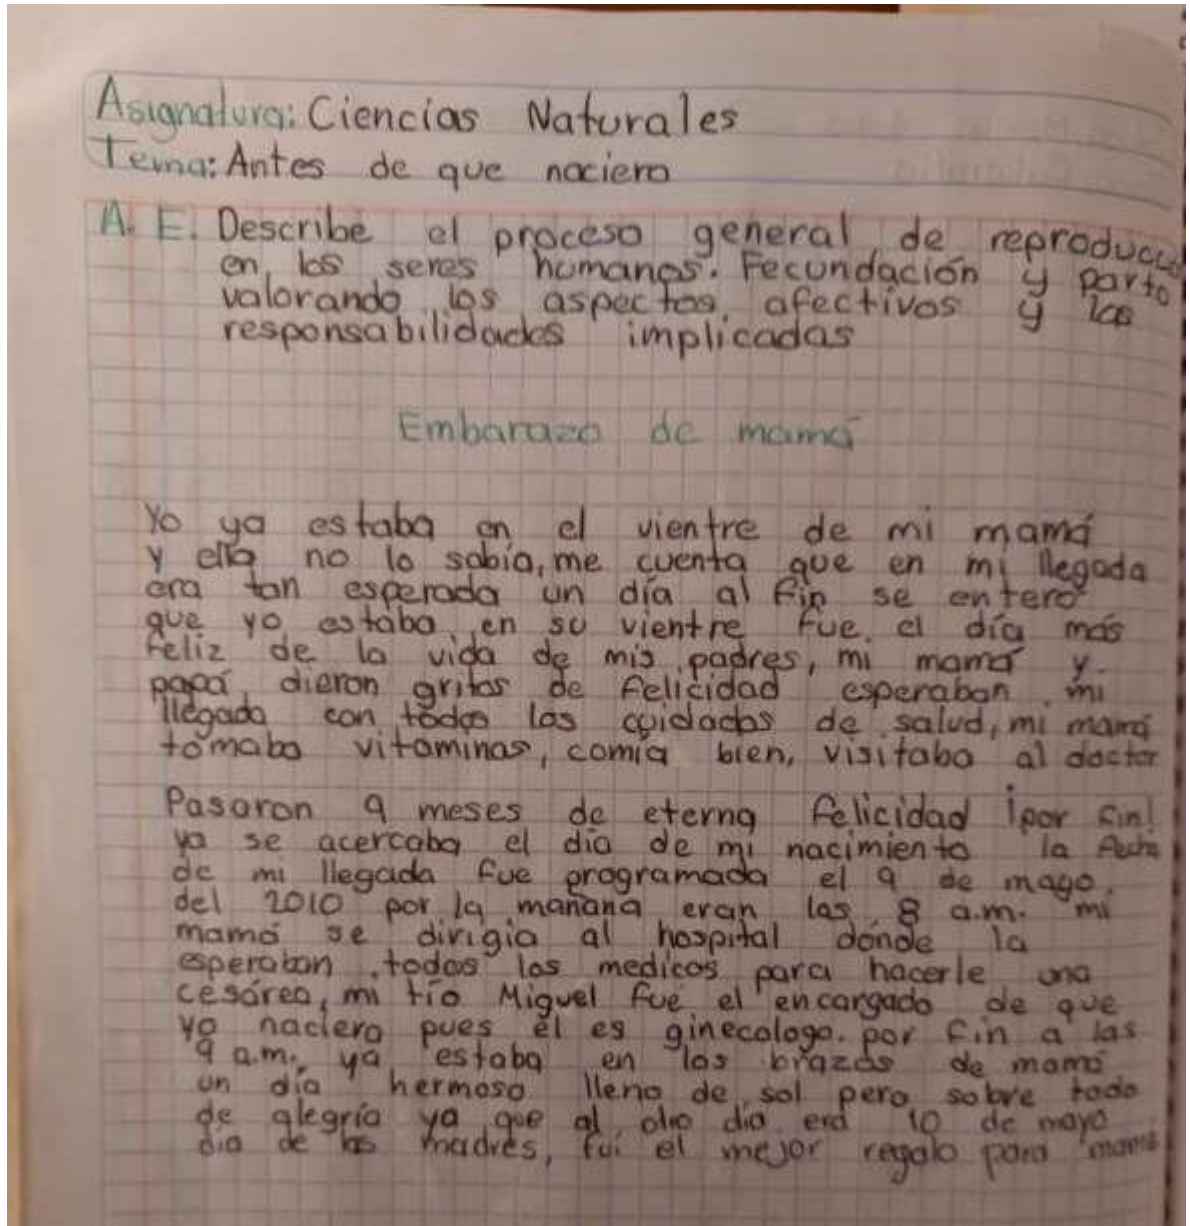 Asignatura: Ciencias Naturales
Tema: Antes de que naciera
A. E. Describe el proceso general de reproducci
en los seres humanos. Fecundación y parto
valorando los aspectos afectivos y las
responsabilidades implicadas
Embarazo de mamá
Yo ya estaba en el vientre de mi mamá
y ella no lo sabía, me cuenta que en mi llegada
era tan esperada un día al fin se enteró
que yo estaba en su vientre fue el día más
feliz de la vida de mis padres, mi mamá y
papá, dieron gritos de felicidad esperaban mi
llegada con todos los cuidados de salud, mi mamá
tomaba vitaminas, comía bien, visitaba al doctor
Pasaron 9 meses de eterna felicidad ¡por fin!
ya se acercaba el día de mi nacimiento la fecha
de mi llegada fue programada el 9 de mayo
del 2010 por la mañana eran las 8 a.m. mi
mamá se dirigía al hospital donde la
esperaban todos los medicos para hacerle una
cesárea, mi tío Miguel fue el encargado de que
yo naciera pues él es ginecologo. por fin a las
9 a.m. ya estaba en los brazos de mamá
un día hermoso lleno de sol pero sobre todo
de alegría ya que al otro día era 10 de mayo
día de las madres, fui el mejor regalo para mamá